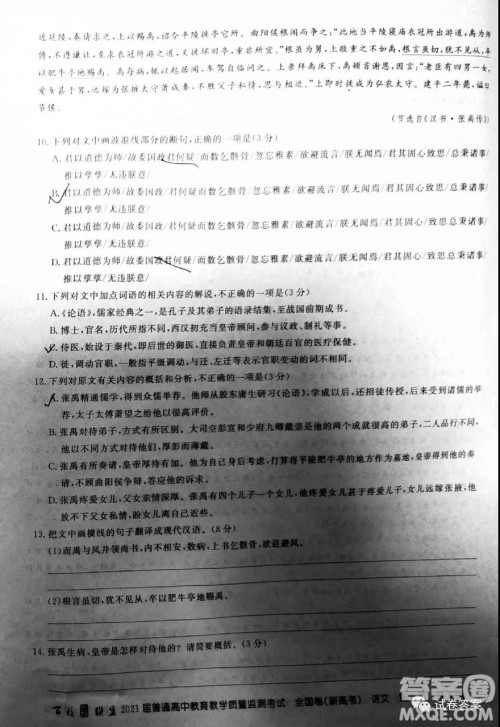 近延陵,奏请求之,上以赐禹,诏令平陵徙亭它所。曲阳侯根闻而争之:“此地当平陵寝庙衣冠所出游道,禹为师
傅,不遵谦让,至求衣冠所游之道,又徙坏旧亭,重非所宜。”根虽为舅,上敬重之不如禹,根言虽切,犹不见从,卒
以肥牛亭地赐禹。
爱女甚于男,远嫁为张掖太守萧咸妻,不胜父子私情,思与相近。”上即时徙咸为弘农太守。建平二年薨,谥曰
节侯。
(节选自《汉书·张禹传》)
10.下列对文中画波浪线部分的断句,正确的一项是(3分)
A.君以道德为师/故委国政君何疑/而数乞骸骨/忽忘雅素/欲避流言/朕无闻焉/君其固心致思/总秉诸事/
推以孳孳/无违朕意/
B.君以道德为师/故委国政/君何疑而数乞骸骨/忽忘雅素/欲避流言/朕无闻焉/君其固心致思/总秉诸事/
推以孳孳/无违朕意/
C.君以道德为师/故委国政/君何疑而数乞骸骨/忽忘雅素/欲避流言/朕无闻焉/君其固心思/致总秉诸事/
推以孳孳/无违朕意/
D.君以道德为师/故委国政君何疑/而数乞骸骨/忽忘雅素/欲避流言/朕无闻焉/君其固心思/致总秉诸事/
推以孳孳/无违朕意/
11.下列对文中加点词语的相关内容的解说,不正确的一项是(3分)
A.《论语》,儒家经典之一,是孔子及其弟子的语录结集,至战国前期成书。
B.博士,官名,历代所指不同,西汉初充当皇帝顾问,汉武帝以后专掌经学传授。
C.侍医,始设于秦代,即后世的御医。负责直接向皇帝和朝廷百官提供医疗服务。
D.徙,调动官职,一般指平级调动,与迁、左迁等表示官职变动的词不同。
12.下列对原文有关内容的概括和分析,不正确的一项是(3分)
A.张禹精通儒学,得到众儒举荐。他师从胶东庸生研习《论语》,学成以后,还招徒传授,后来受到诸儒的举
荐,太子太傅萧望之给以他很高评价。
B.张禹对待弟子,方式有所区别。大司空彭宣和少府九卿戴崇是他的成就大的弟子,因二人性格不同,张
禹对待他们,有厚彭而薄戴。
C.张禹所有奏请,皇帝厚待有加。他为自己身后事考虑,打算将平陵肥牛亭的地方作为墓地,皇帝优待他,
不顾曲阳侯争辩,答应他的请求。
D.张禹疼爱儿女,父女亲情深厚。张禹共有四个儿子、一个女儿,他疼爱女儿,女儿却远嫁张掖,他
为放不下父女私情,盼望女儿能离自己近些。
13.把文中画横线的句子翻译成现代汉语。(8分)
(1)而禹与凤并领尚书,内不自安,数病,上书乞骸骨,欲退避凤。
(2)根言虽切,犹不见从,卒以肥牛亭地赐禹。
14.张禹生病,皇帝如何善待他?请简要概括。(3分)
2021届普通高中教育教学质量监测考试 全国卷(新高考) 语文
答案圈
试卷答案